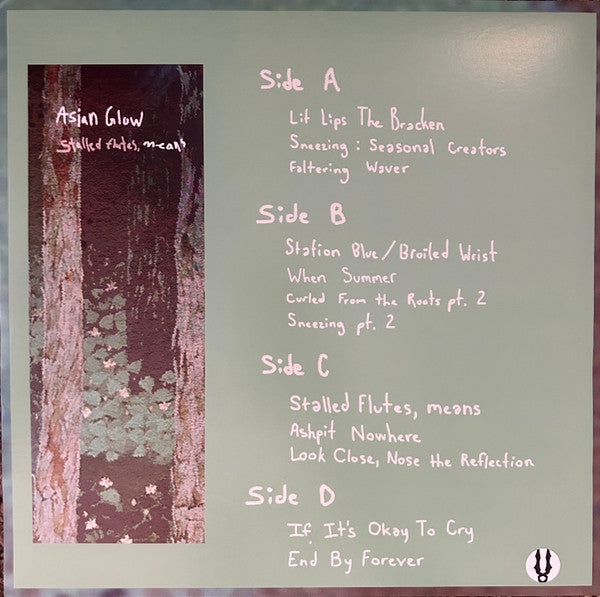 Asian Glow
Stalled flutes, means
Side A
Lit Lips The Bracken
Sneezing : Seasonal Creators
Faltering Waver
Side B
Station Blue / Broiled Wrist
When Summer
Curled From the Roots pt. 2
Sneezing pt. 2
Side C
Stalled Flutes, means
Ashpit Nowhere
Look Close, Nose the Reflection
Side D
If It's Okay To Cry
End By Forever